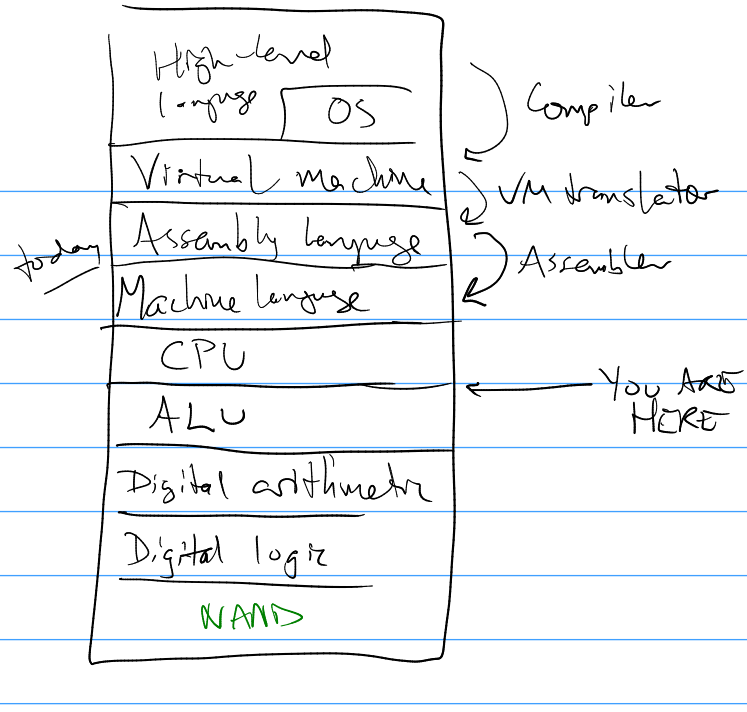 High-level
language
OS
Compiler
Virtual machine
VM translator
today
Assembly language
Assembler
Machine language
CPU
YOU ARE
HERE
ALU
Digital arithmetic
Digital logic
NAND